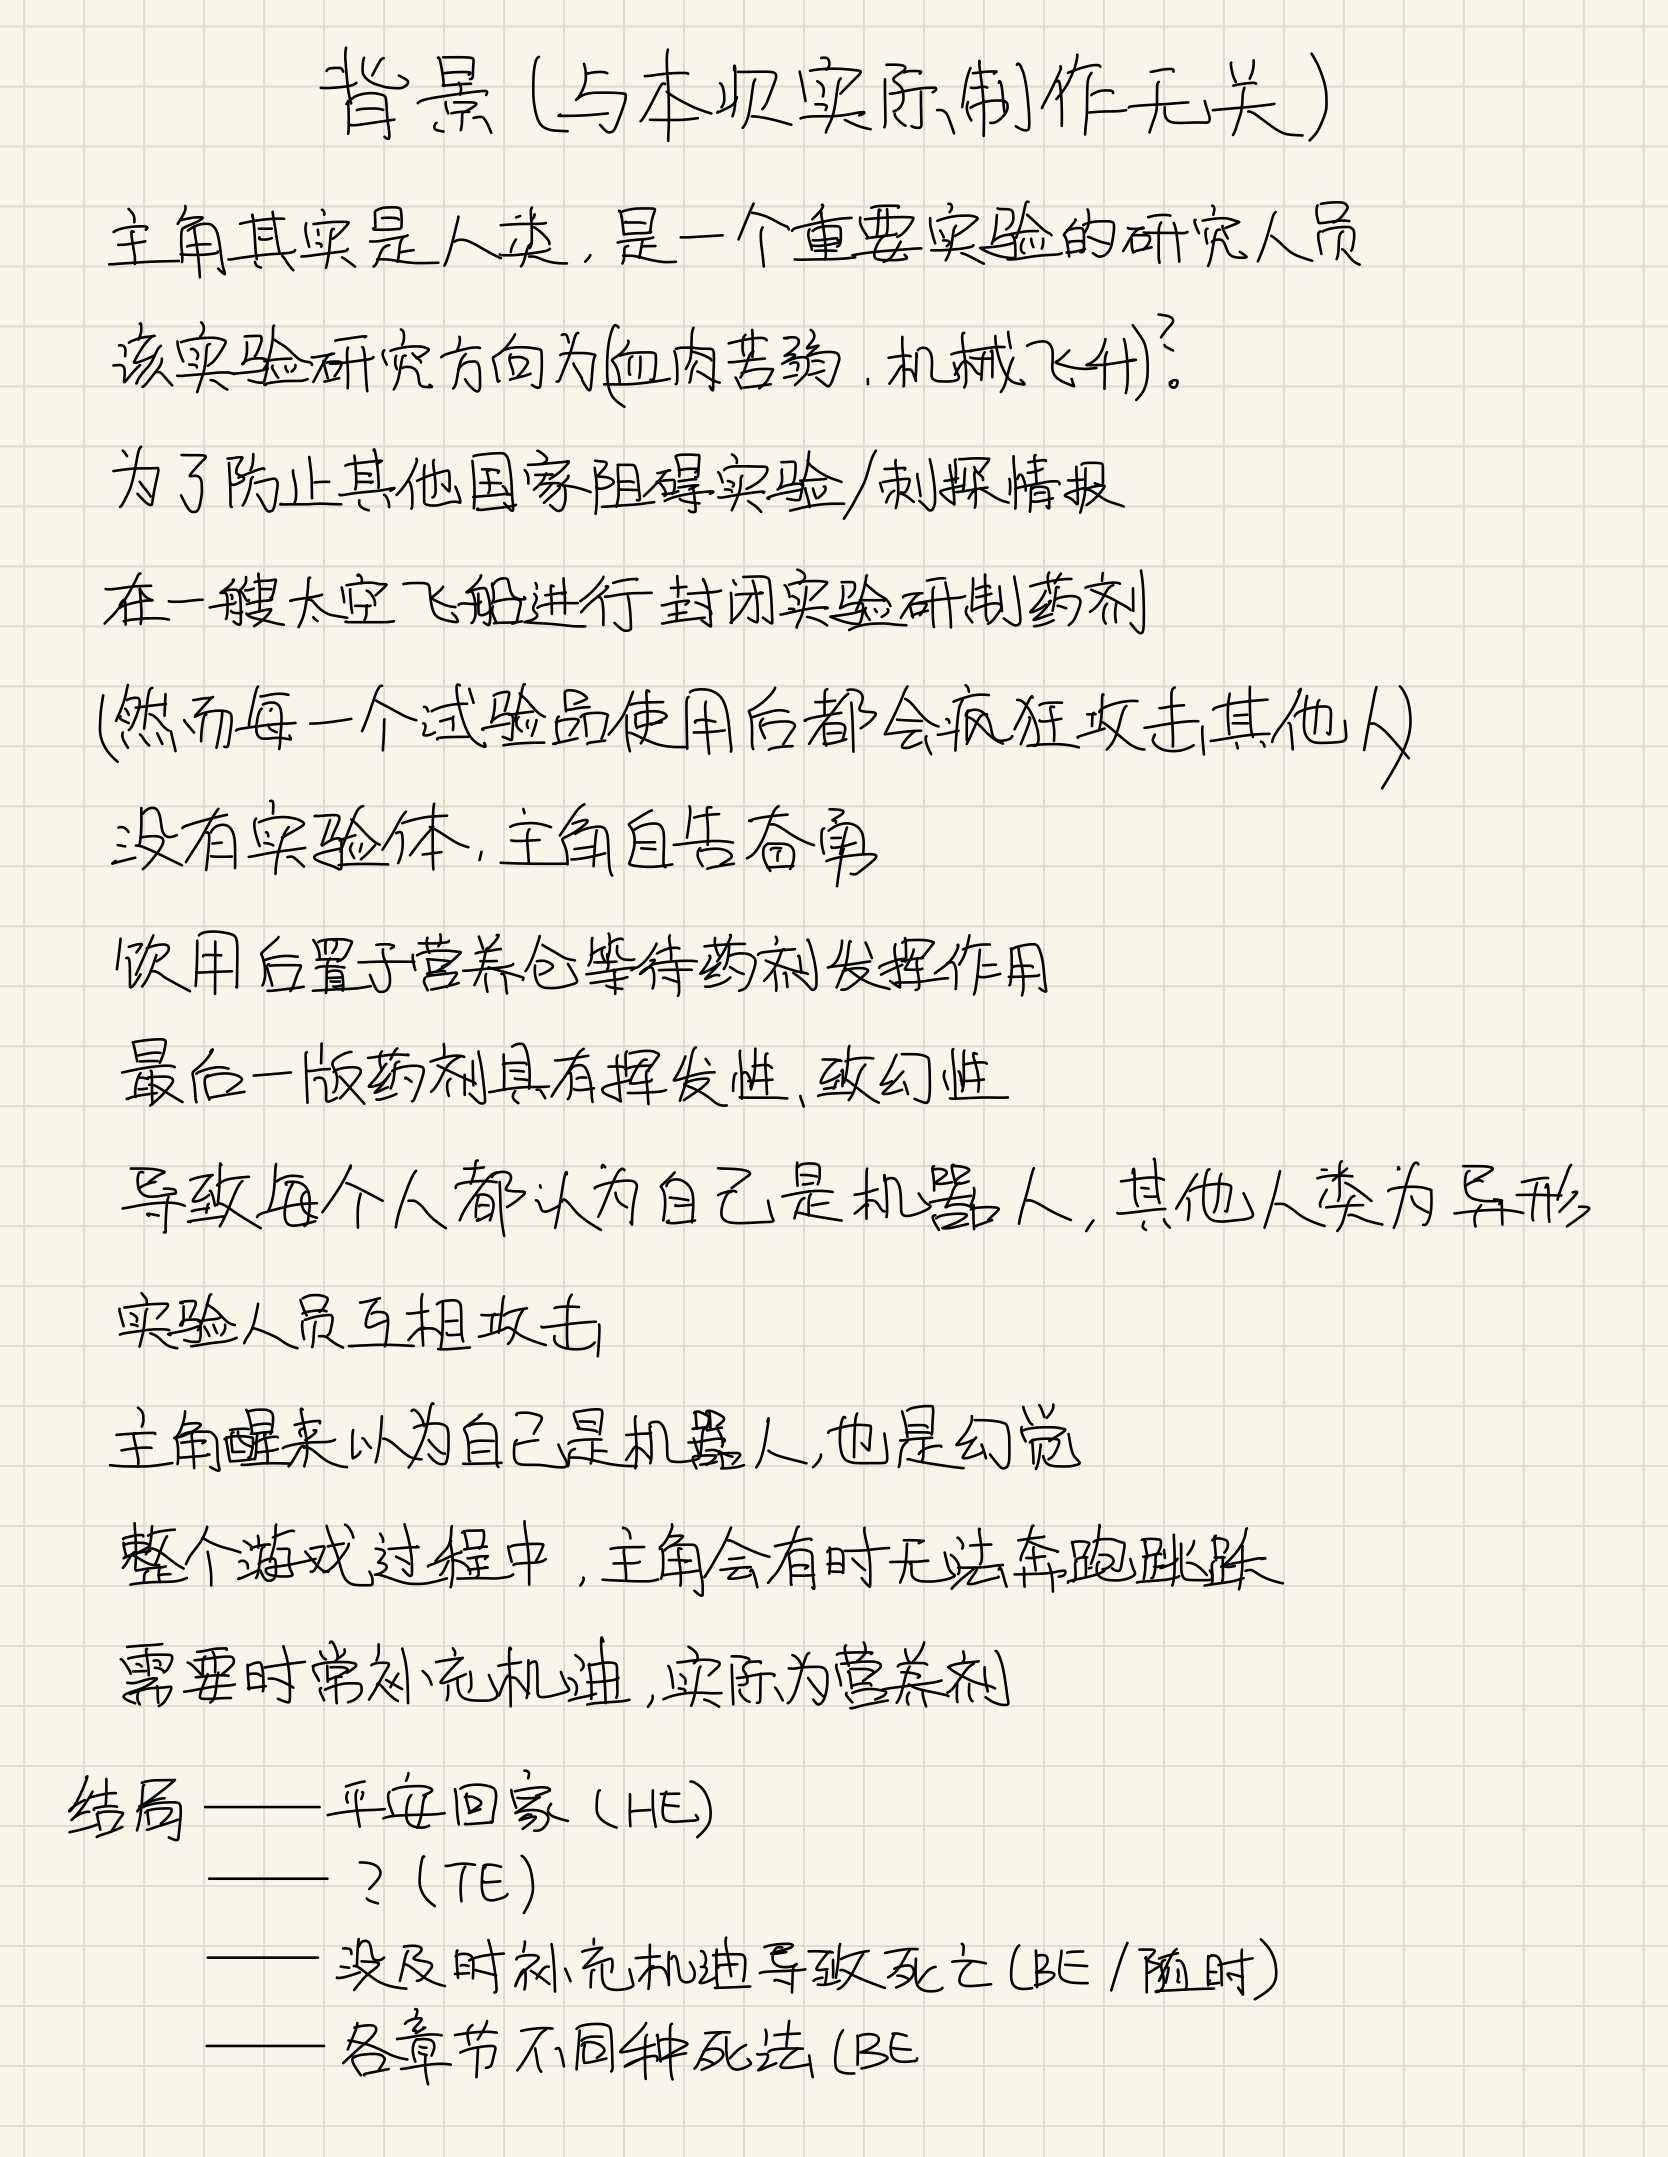 背景(与本次实际制作无关)
主角其实是人类,是一个重要实验的研究人员
该实验研究方向为(血肉苦弱,机械飞升)?。
为了防止其他国家阻碍实验/刺探情报
在一艘太空飞船进行封闭实验研制药剂
(然而每一个试验品使用后都会疯狂攻击其他人)
没有实验体,主角自告奋勇
饮用后置于营养仓等待药剂发挥作用
最后一版药剂具有挥发性、致幻性
导致每个人都认为自己是机器人,其他人类为异形
实验人员互相攻击
主角醒来以为自己是机器人,也是幻觉
整个游戏过程中,主角会有时无法奔跑跳跃
需要时常补充机油,实际为营养剂
结局——平安回家(HE)
——?(TE)
——没及时补充机油导致死亡(BE/随时)
——各章节不同种死法(BE